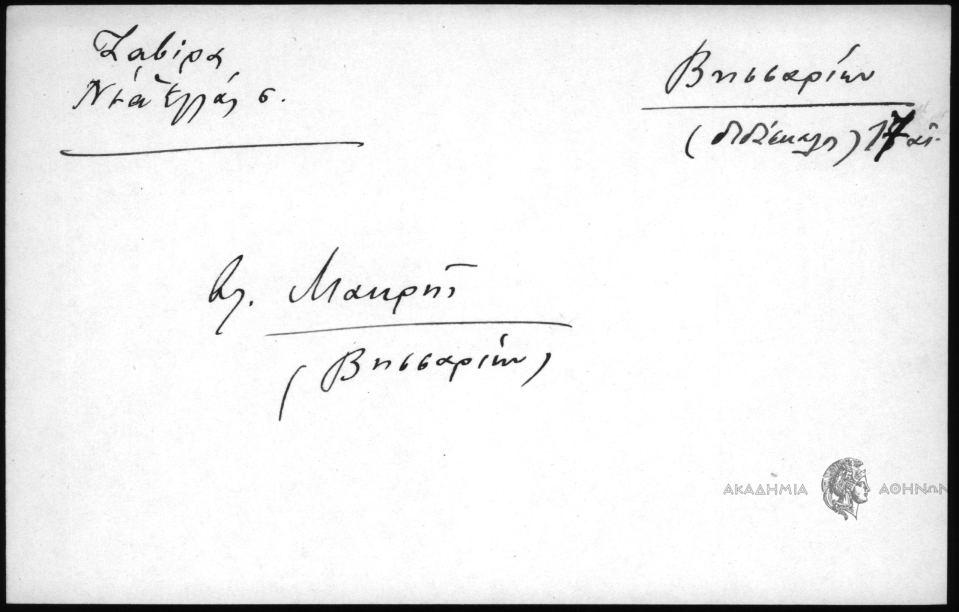 Ζαβίρα
Νέα Ἑλλάς σ.
Βησσαρίων
(διδάσκαλος) 17 αἰ.
βλ. Μακρῆς
(Βησσαρίων)
ΑΚΑΔΗΜΙΑ ΑΘΗΝΩΝ